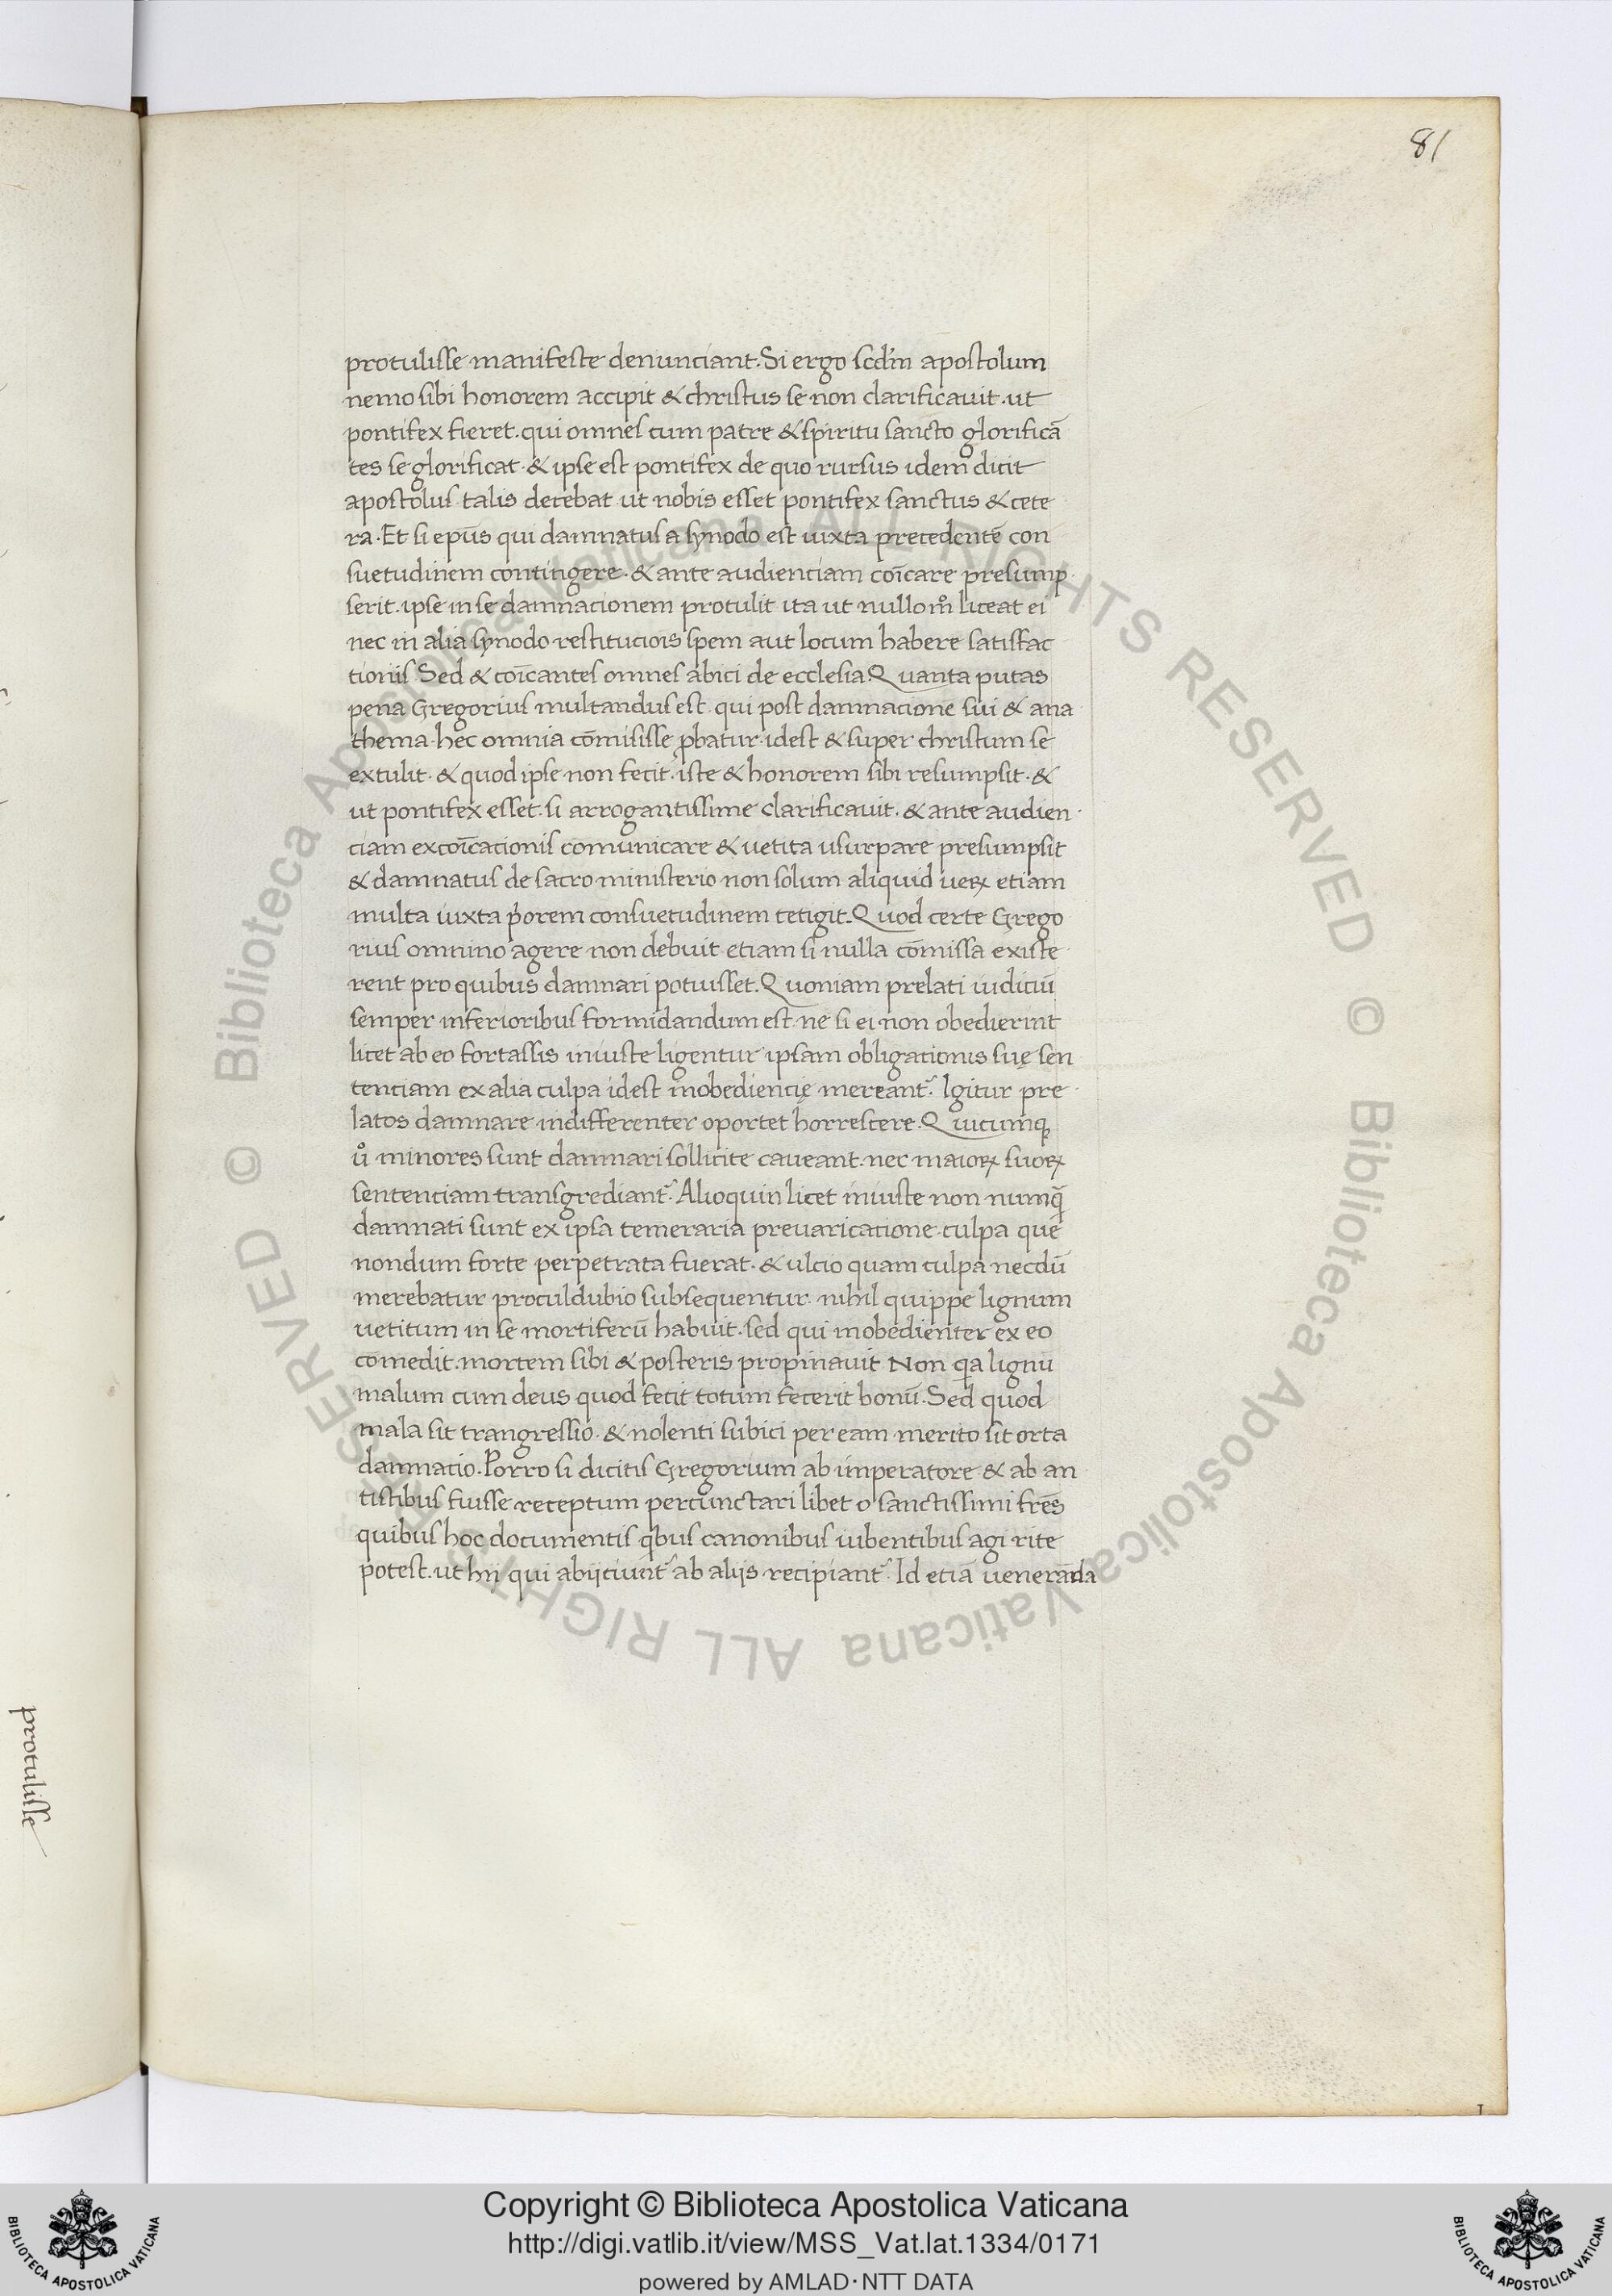 81
protulisse manifeste denunciant. Si ergo scd'm apostolum
nemo sibi honorem accipit & christus se non clarificauit. ut
pontifex fieret. qui omnes cum patre & spiritu sancto glorificā
tes se glorificat. & ipse est pontifex de quo rursus idem dicit
apostolus talis decebat ut nobis esset pontifex sanctus & cete
ra. Et si ep̄us qui damnatus a synodo est iuxta precedentē con
suetudinem contingere. & ante audienciam coīcare presump
serit. ipse in se damnacionem protulit ita ut nullo mͦ liceat ei
nec in alia synodo restituciōis spem aut locum habere satisfac
tionis Sed & coīcantes omnes abici de ecclesia. Quanta putas
pena Gregorius multandus est. qui post damnacionē sui & ana
thema. hec omnia cōmisisse ꝓbatur. idest & super christum se
extulit. & quod ipse non fecit. iste & honorem sibi resumpsit. &
ut pontifex esset. si arrogantissime clarificauit. & ante audien
ciam excoīcacionis comunicare & uetita usurpare presumpsit
& damnatus de sacro ministerio non solum aliquid ueꝝ etiam
multa iuxta p'orem consuetudinem tetigit. Quod certe Grego
rius omnino agere non debuit etiam si nulla cōmissa existe
rent pro quibus damnari potuisset. Quoniam prelati iudiciū
semper inferioribus formidandum est. ne si ei non obedierint
licet ab eo fortassis iniuste ligentur ipsam obligationis suę sen
tenciam ex alia culpa idest inobediencię mereant᷑. Igitur pre
latos damnare indifferenter oportet horrescere. Quicumq;
uͦ minores sunt damnari sollicite caueant. nec maioꝝ suoꝝ
sentenciam transgrediant᷑. Alioquin licet iniuste non numq̄
damnati sunt ex ipsa temeraria preuaricatione culpa que
nondum forte perpetrata fuerat. & ulcio quam culpa necdū
merebatur proculdubio subsequentur. nihil quippe lignum
uetitum in se mortiferū habuit. sed qui inobedienter ex eo
comedit. mortem sibi & posteris propinauit Non qa lignū
malum cum deus quod fecit totum fecerit bonū. Sed quod
mala sit trangressio. & nolenti subici per eam merito sit orta
damnacio. Porro si dicitis Gregorium ab imperatore & ab an
tistibus fuisse receptum percunctari libet o sanctissimi frēs
quibus hoc documentis qbus canonibus iubentibus agi rite
potest. ut hii qui abiiciunt᷑ ab aliis recipiant᷑. Id etiā ueneranda
protulisse
Copyright © Biblioteca Apostolica Vaticana
http://digi.vatlib.it/view/MSS_Vat.lat.1334/0171
powered by AMLAD·NTT DATA
BIBLIOTECA APOSTOLICA VATICANA
BIBLIOTECA APOSTOLICA VATICANA
© Biblioteca Apostolica Vaticana ALL RIGHTS RESERVED © Biblioteca Apostolica Vaticana ALL RIGHTS RESERVED